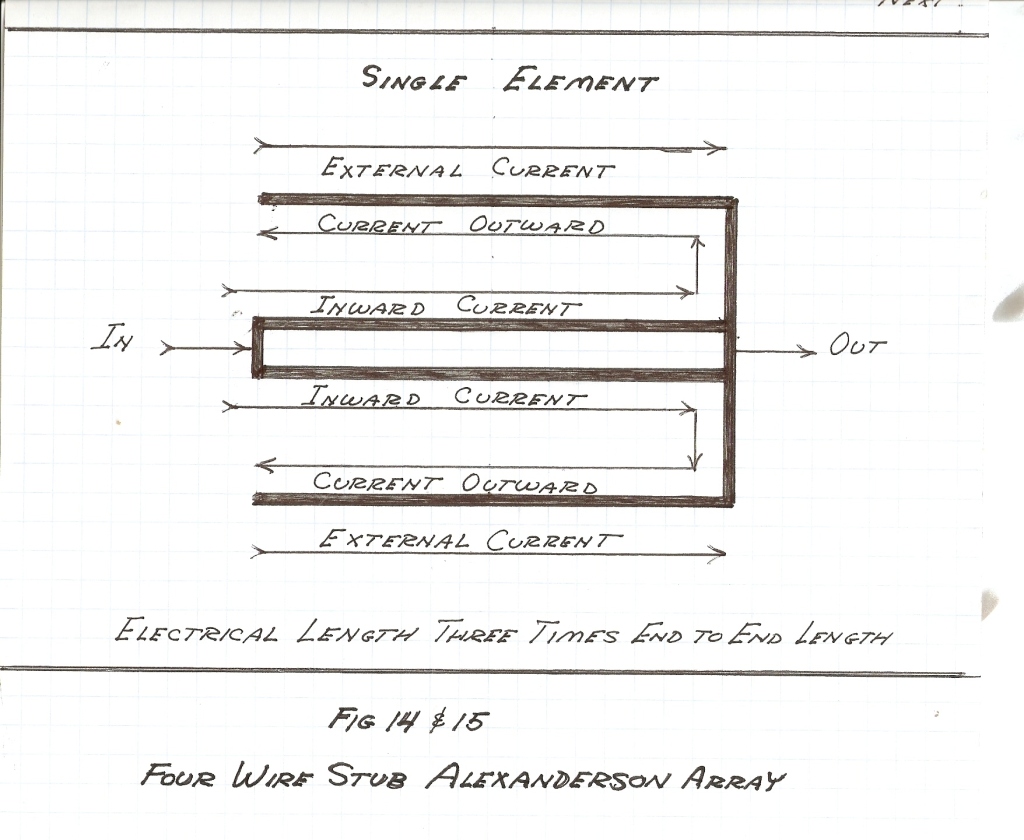 NEXT
SINGLE ELEMENT
EXTERNAL CURRENT
CURRENT OUTWARD
INWARD CURRENT
IN
OUT
INWARD CURRENT
CURRENT OUTWARD
EXTERNAL CURRENT
ELECTRICAL LENGTH THREE TIMES END TO END LENGTH
FIG 14 & 15
FOUR WIRE STUB ALEXANDERSON ARRAY